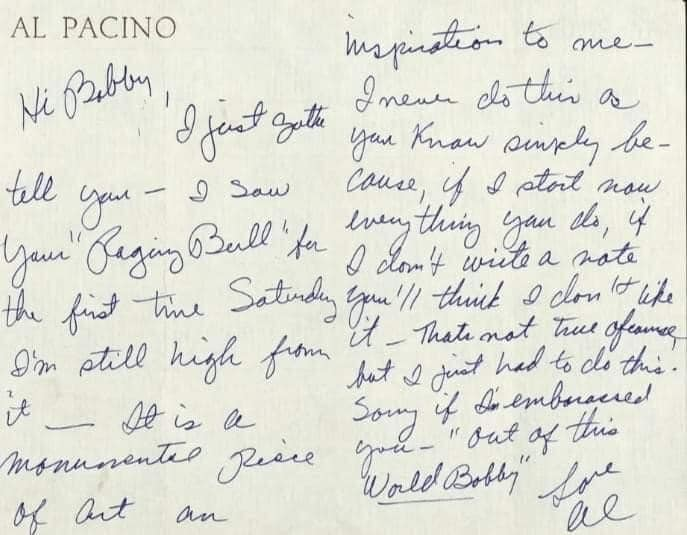 AL PACINO
Hi Bobby,
I just gotta
tell you – I saw
your "Raging Bull" for
the first time Saturday
I'm still high from
it — It is a
monumental piece
of art an
inspiration to me –
I never do this as
you know simply be-
cause, if I start now
everything you do, if
I don't write a note
you'll think I don't like
it – Thats not true ofcourse,
but I just had to do this.
Sorry if I'm embarassed
you – "out of this
World Bobby"
Love
Al